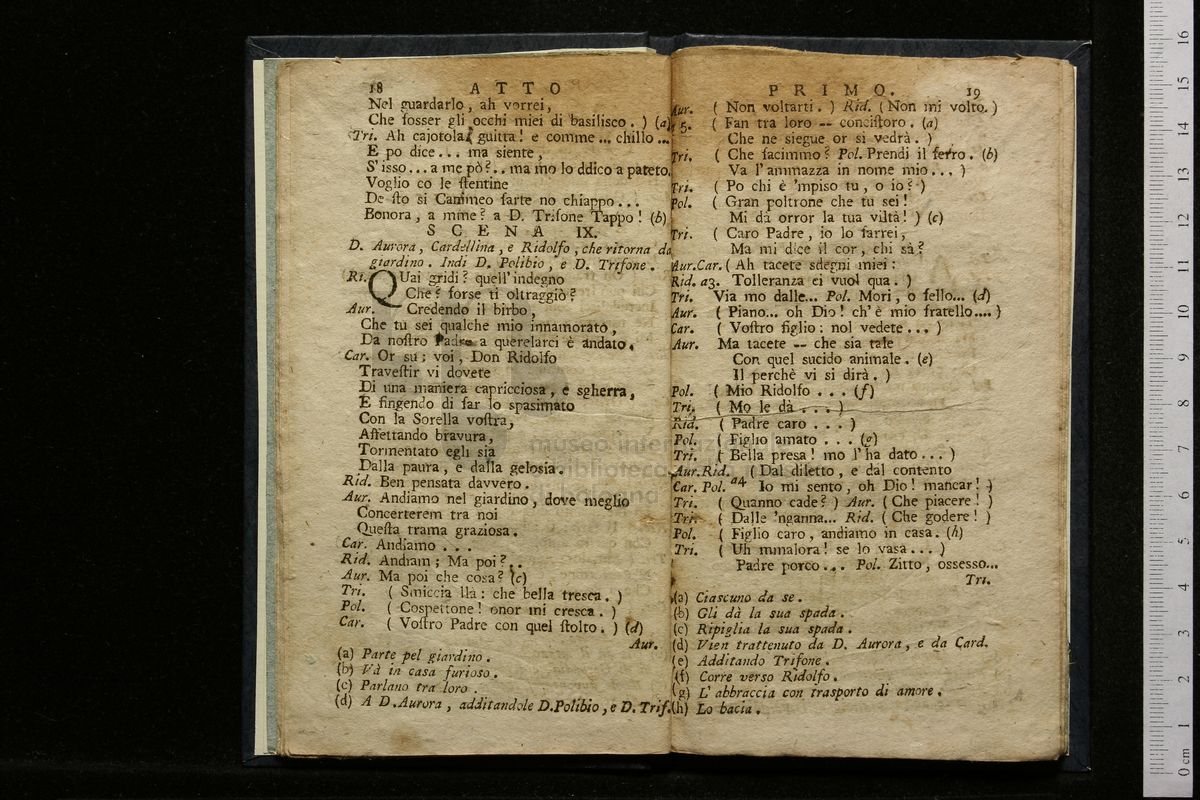 18 ATTO
Nel guardarlo, ah vorrei,
Che fosser gli occhi miei di basilisco.) (a)
Tri. Ah cajotola, guitta! e comme... chillo...
E po dice... ma siente,
S'isso... a me pò?.. ma mo lo ddico a pateto.
Voglio co le ſtentine
De ſto si Cammeo farte no chiappo...
Bonora, a mme? a D. Trifone Tappo! (b)
SCENA IX.
D. Aurora, Cardellina, e Ridolfo, che ritorna da
giardino. Indi D. Polibio, e D. Trifone.
Ri. QUai gridi? quell'indegno
Che? forse ti oltraggiò?
Aur. Credendo il birbo,
Che tu sei qualche mio innamorato,
Da noſtro Padre a querelarci è andato.
Car. Or su; voi, Don Ridolfo
Traveſtir vi dovete
Di una maniera capricciosa, e sgherra,
E fingendo di far lo spasimato
Con la Sorella voſtra,
Affettando bravura,
Tormentato egli sia
Dalla paura, e dalla gelosia.
Rid. Ben pensata davvero.
Aur. Andiamo nel giardino, dove meglio
Concerterem tra noi
Queſta trama graziosa.
Car. Andiamo...
Rid. Andiam; Ma poi?..
Aur. Ma poi che cosa? (c)
Tri. (Smiccia llà: che bella tresca.)
Pol. (Cospettone! onor mi cresca.)
Car. (Voſtro Padre con quel ſtolto.) (d)
Aur.
(a) Parte pel giardino.
(b) Và in casa furioso.
(c) Parlano tra loro.
(d) A D. Aurora, additandole D. Polibio, e D. Trif.
PRIMO. 19
Aur. (Non voltarti.) Rid. (Non mi volto.)
a 5. (Fan tra loro -- conciſtoro. (a)
Che ne siegue or si vedrà.)
Tri. (Che facimmo? Pol. Prendi il ferro. (b)
Va l'ammazza in nome mio...)
Tri. (Po chi è 'mpiso tu, o io?)
Pol. (Gran poltrone che tu sei!
Mi dà orror la tua viltà!) (c)
Tri. (Caro Padre, io lo farrei,
Ma mi dice il cor, chi sà?
Aur.Car. (Ah tacete sdegni miei:
Rid. a3. Tolleranza ci vuol qua.)
Tri. Via mo dalle... Pol. Mori, o fello... (d)
Aur. (Piano... oh Dio! ch'è mio fratello....)
Car. (Voſtro figlio: nol vedete...)
Aur. Ma tacete -- che sia tale
Con quel sucido animale. (e)
Il perchè vi si dirà.)
Pol. (Mio Ridolfo... (f)
Tri. (Mo le dà...)
Rid. (Padre caro...)
Pol. (Figlio amato... (g)
Tri. (Bella presa! mo l'ha dato...)
Aur.Rid. (Dal diletto, e dal contento
Car. Pol. a4 Io mi sento, oh Dio! mancar!)
Tri. (Quanno cade?) Aur. (Che piacere!)
Tri. (Dalle 'nganna... Rid. (Che godere!)
Pol. (Figlio caro, andiamo in casa. (h)
Tri. (Uh mmalora! se lo vasa...)
Padre porco... Pol. Zitto, ossesso...
Tri.
(a) Ciascuno da se.
(b) Gli dà la sua spada.
(c) Ripiglia la sua spada.
(d) Vien trattenuto da D. Aurora, e da Card.
(e) Additando Trifone.
(f) Corre verso Ridolfo.
(g) L'abbraccia con trasporto di amore.
(h) Lo bacia.
museo internazionale
biblioteca della musica
di bologna
0 cm 1 2 3 4 5 6 7 8 9 10 11 12 13 14 15 16